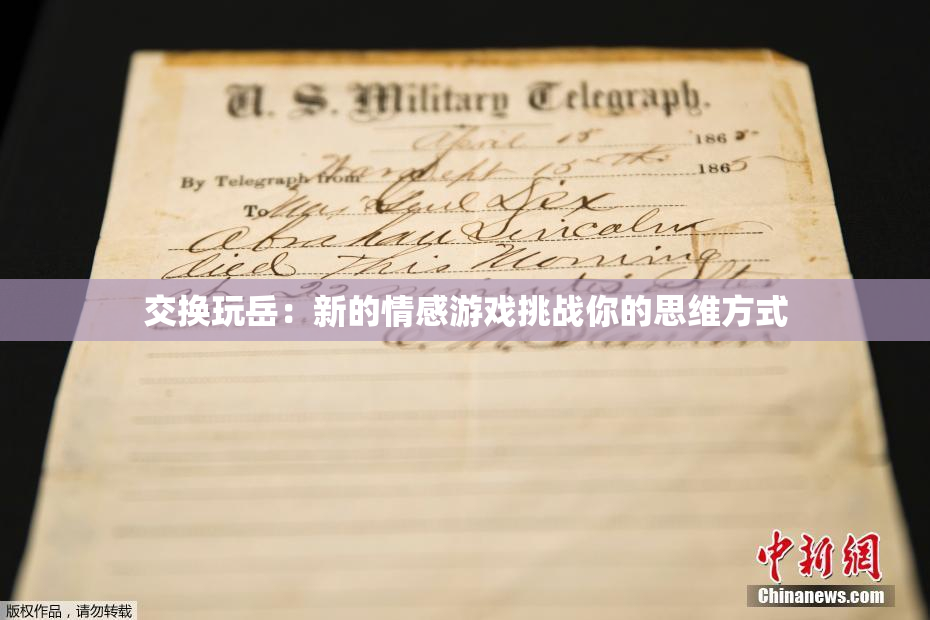 U. S. Military Telegraph.
April 15 1865
By Telegraph from War Dept 15th 1865
To Maj Genl Dix
Abraham Lincoln
died This Morning
at 22 minutes after
交换玩岳：新的情感游戏挑战你的思维方式
E. M. Stanton
中新网
Chinanews.com
版权作品，请勿转载